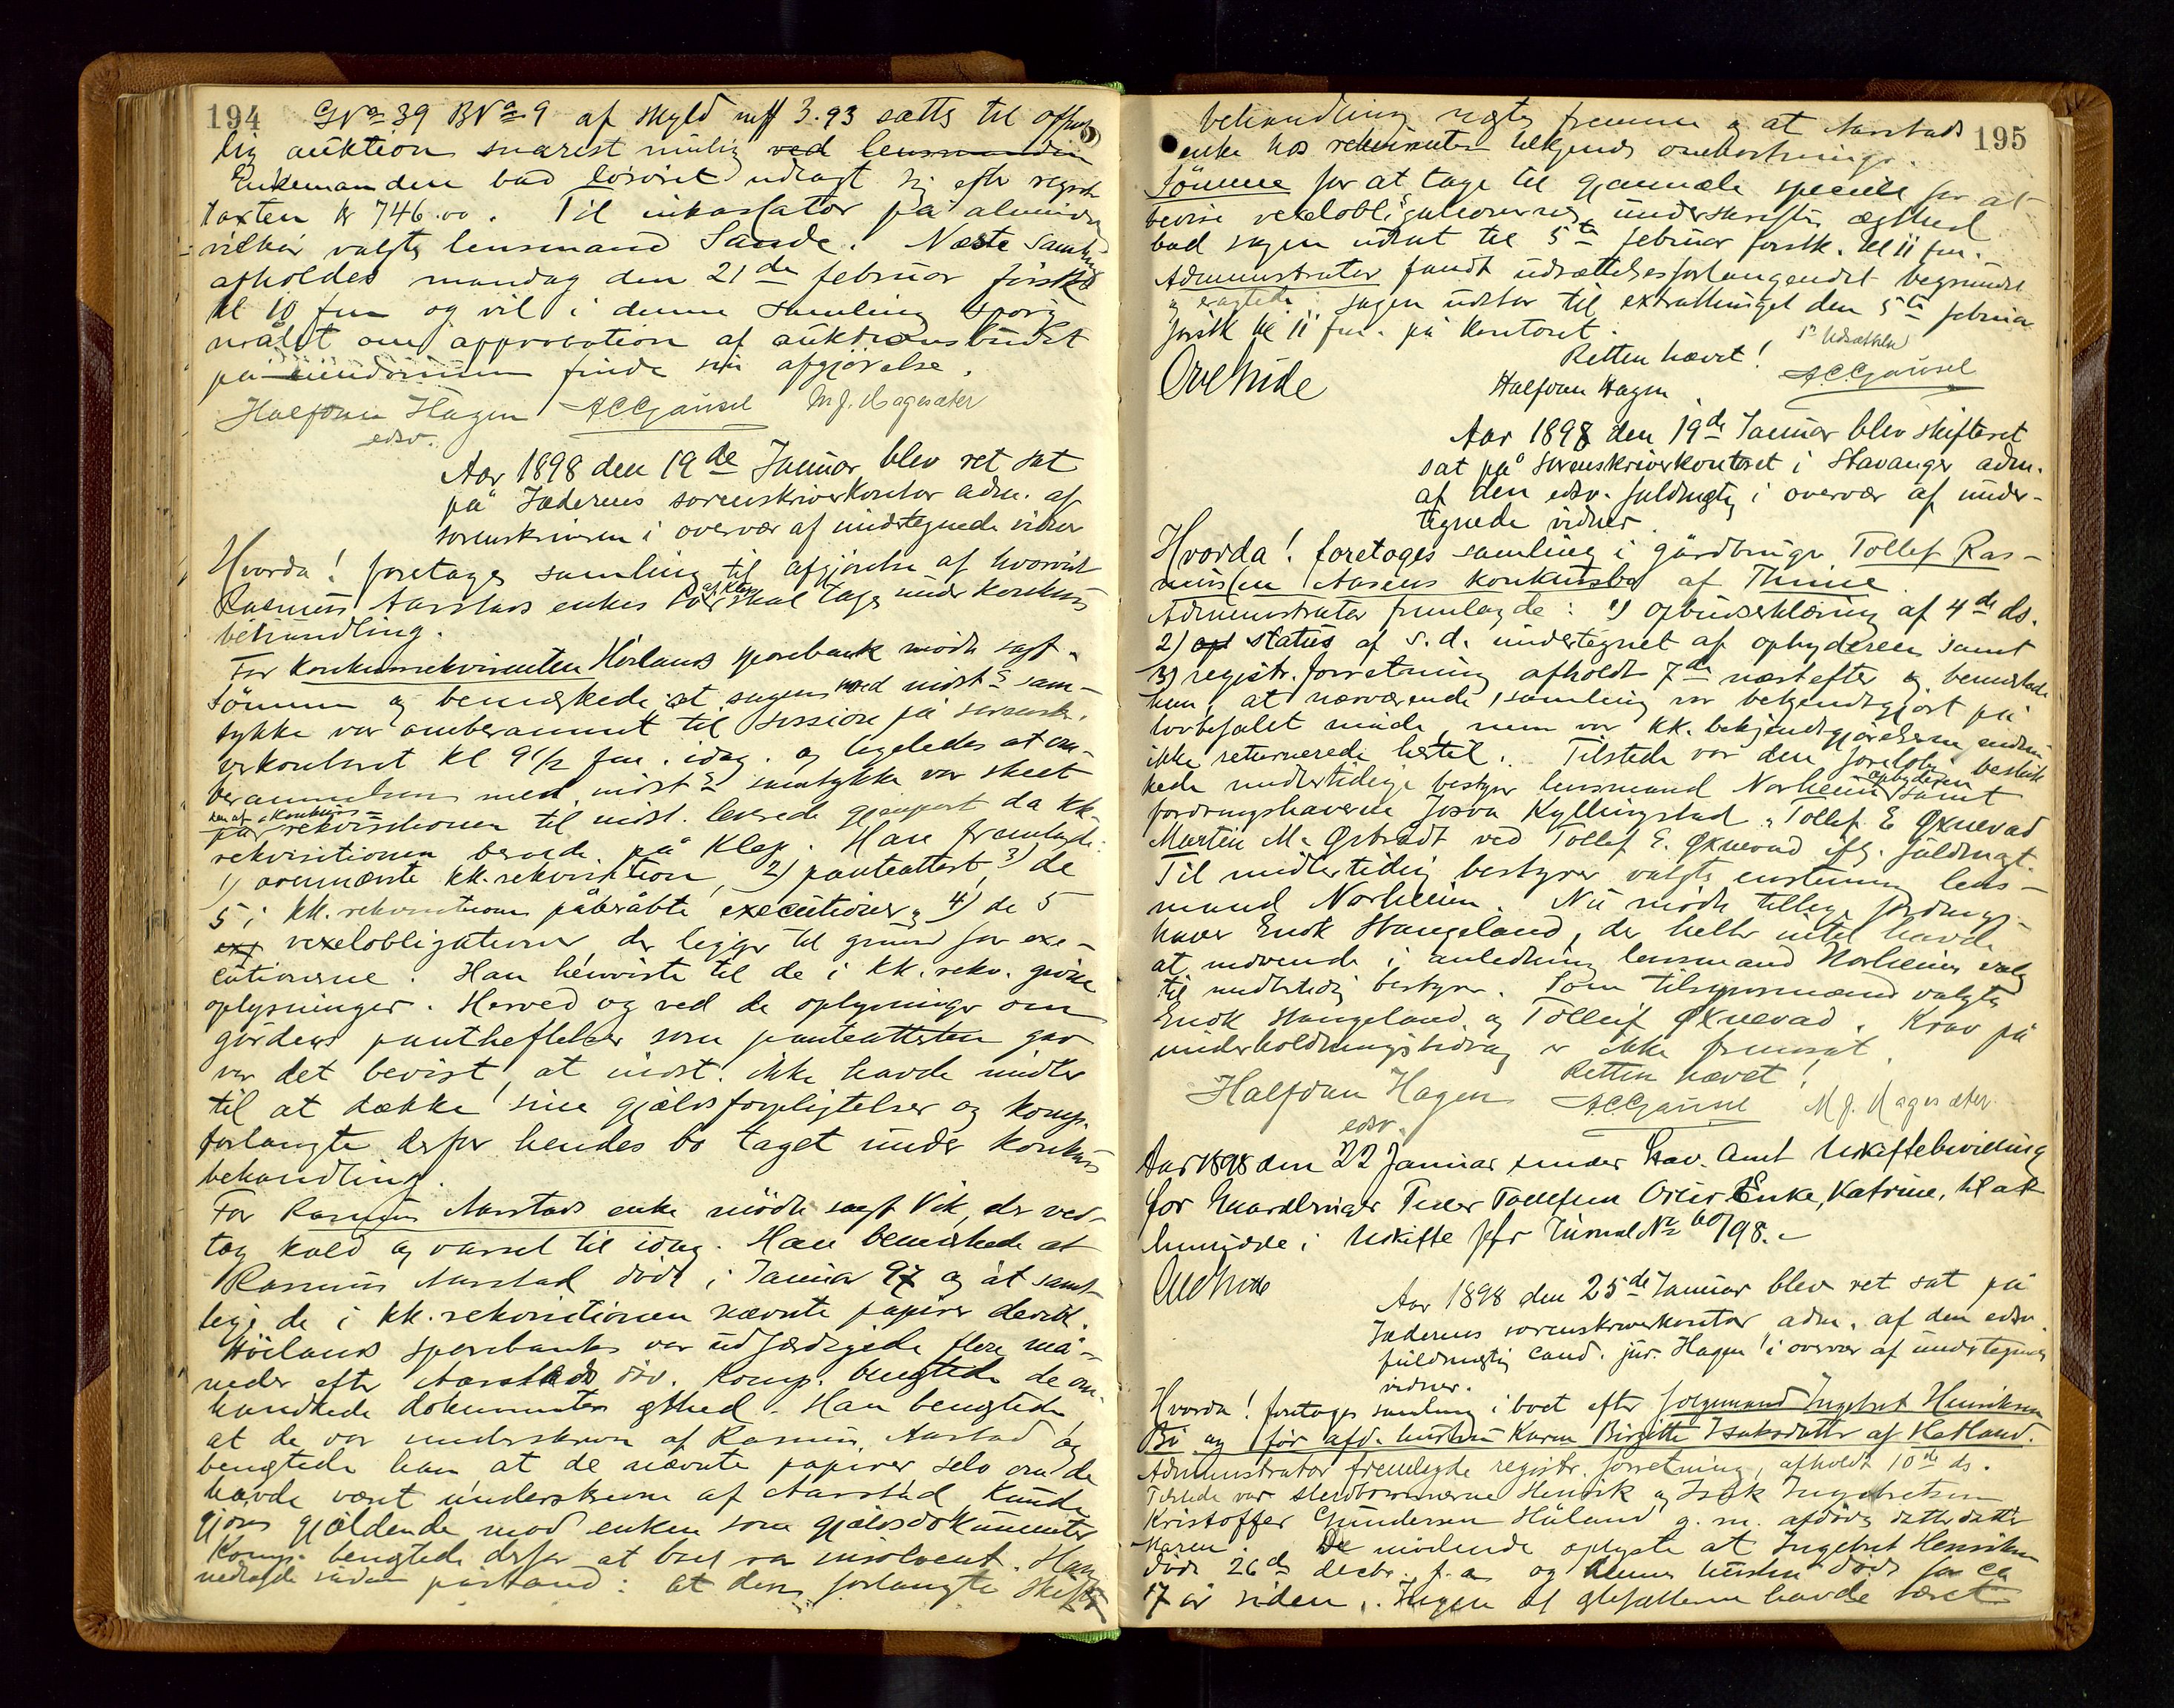 194
GNo 39 BNo 9 af skyld mff 3.93 sættes til offent
lig auktion snarest mulig ved lensmanden
Enkemanden bad løsøret udlagt sig efter registr
taxten kr 746.00. Til inkassator på almindel
vilkår valgtes lensmand Sande. Næste samling
afholdes mandag den 21de februar førstk
kl 10 fm og vil i denne samling spørgs
målet om approbation af auktionsbudet
på eiendommen finde sin afgjørelse.
Halfdan Hagen ACGjausel M J. Hagesæter
edsv.
Aar 1898 den 19de Januar blev ret sat
på Jæderens sorenskriverkontor adm. af
sorenskriveren i overvær af undertegnede vidner
Hvorda! foretages samling til afgjørelse af hvorvidt
Rasmus Aarstads enkes bo af Klep skal tages under konkurs
behandling.
For konkursrekvirenten Höilands sparebank mødte sagf.
Sömme og bemærkede at sagen med indst.s sam-
tykke var omberammet til session på sorensk.
verkontoret kl 9 1/2 fm. idag. og ligeledes at om-
berammelsen med indst.s samtykke var skeet
på den af konkurs-rekvisitionen til indst. leverede gjenpart da kk.
rekvisitionen beroede på Klep. Han fremlagde:
1) ovennævnte kk.rekvisition, 2) panteattest, 3) de
5 i kk. rekvisitionen påberåbte executioner, 4) de 5
exf vexelobligationer der ligger til grund for exe-
cutionerne. Han henviste til de i kk. rekv. givne
oplysninger. Herved og ved de oplysninger om
gårdens pantheftelser som panteattesten gav
var det bevist, at indst. ikke havde midler
til at dække sine gjældsforpligtelser og komp.
forlangte derfor hendes bo taget under konkurs
behandling.
For Rasmus Aarstads enke mödte sagf Vik, der ved-
tog kald og varsel til idag. Han bemærkede at
Rasmus Aarstad döde i Januar 97 og at samt-
lige de i kk. rekvisitionen nævnte papirer
Höilands sparebank var udfærdigede flere må-
neder efter Aarstads död. Komp. benegtede de om-
handlede dokumenters ægthed. Han benegtede
at de var underskrevne af Rasmus Aarstad og
benegtede han at de nævnte papirer selv om de
havde været underskrevne af Aarstad kunde
gjöres gjældende mod enken som gjældsdokumenter
Komp. benegtede derfor at boet var insolvent. Han
nedlagde sådan påstand: at den forlangte skifte
195
behandling negtes fremme og at Aarstads
enke hos rekvirenten tilkjendes omkostninger.
Sömme for at tage til gjenmæle specielt for at
bevise vexelobligationernes underskrifters ægthed
bad sagen udsat til 5te februar förstk. kl 11 fm.
Administrator fandt udsættelsesforlangendet begrundet
og eragtede: sagen udstår til extrathinget den 5te februar
förstk kl 11 fm. på kontoret.
Retten hævet!
Halfdan Hagen ACGjausel
Aar 1898 den 19de Januar blev skifteret
sat på sorenskriverkontoret i Stavanger adm.
af den edsv. fuldmægtig i overvær af under-
tegnede vidner.
Hvorda! foretoges samling i gårdbruger Tollef Ras-
mussen Aasens konkursbo af Thime
Administrator fremlagde: 1) opbudserklæring af 4de ds.
2) opf status af s. d. undertegnet af opbyderen samt
3) registr. forretning afholdt 7de næstefter og bemærkede
han, at nærværende samling var bekjendtgjort på
lovbefalet måde, men var kk. bekjendtgjörelserne endnu
ikke returnerede hertil. Tilstede var den foreløbig beskik-
kede midlertidige bestyrer lensmand Norheim opbyderen samt
fordringshaverne Josva Kyllingstad, Tollef E Øxnevad
Martin M. Orstadt ved Tollef E. Øxnevad ifg. fuldmagt.
Til midlertidig bestyrer valgtes enstemmig lens-
mand Norheim. Nu mödte tillige fordrings-
haver Enok Stangeland, der heller intet havde
at indvende i anledning lensmand Norheims valg
til midlertidig bestyrer. Som tilsynsmænd valgtes
Enok Stangeland og Tolleif Øxnevad. Krav på
underholdningsbidrag er ikke fremsat.
Retten hævet!
Halfdan Hagen ACGjausel M J. Hagesæter
edsv.
Aar 1898 den 22 Januar Stav. Amt Uskiftebevilling
for Gaardbruger Peder Tollefsen Enke, Katrine, til at
hensidde i Uskifte jfr Jurnal No 60/98.
Aar 1898 den 25de Januar blev ret sat på
Jæderens sorenskriverkontor adm. af den edsv.
fuldmægtig cand. jur. Hagen i overvær af undertegnede
vidner.
Hvorda! foretages samling i boet efter folgemand Ingebret Henriksen
Bö og för afd. hustru Karen Birgitte Isaksdatter af Hetland.
Administrator fremlagde registr. forretning, afholdt 10de ds.
Tilstede var Henrik og Isak Ingebretsen
Kristoffer Gundersen Håland g. m. afdödes datterdatter
Karen. De mödende oplyste at Ingebret Henriksen
döde 26de decbr. f. a. og dennes hustru döde for ca
17 år siden. Ingen af ægtefællerne havde været